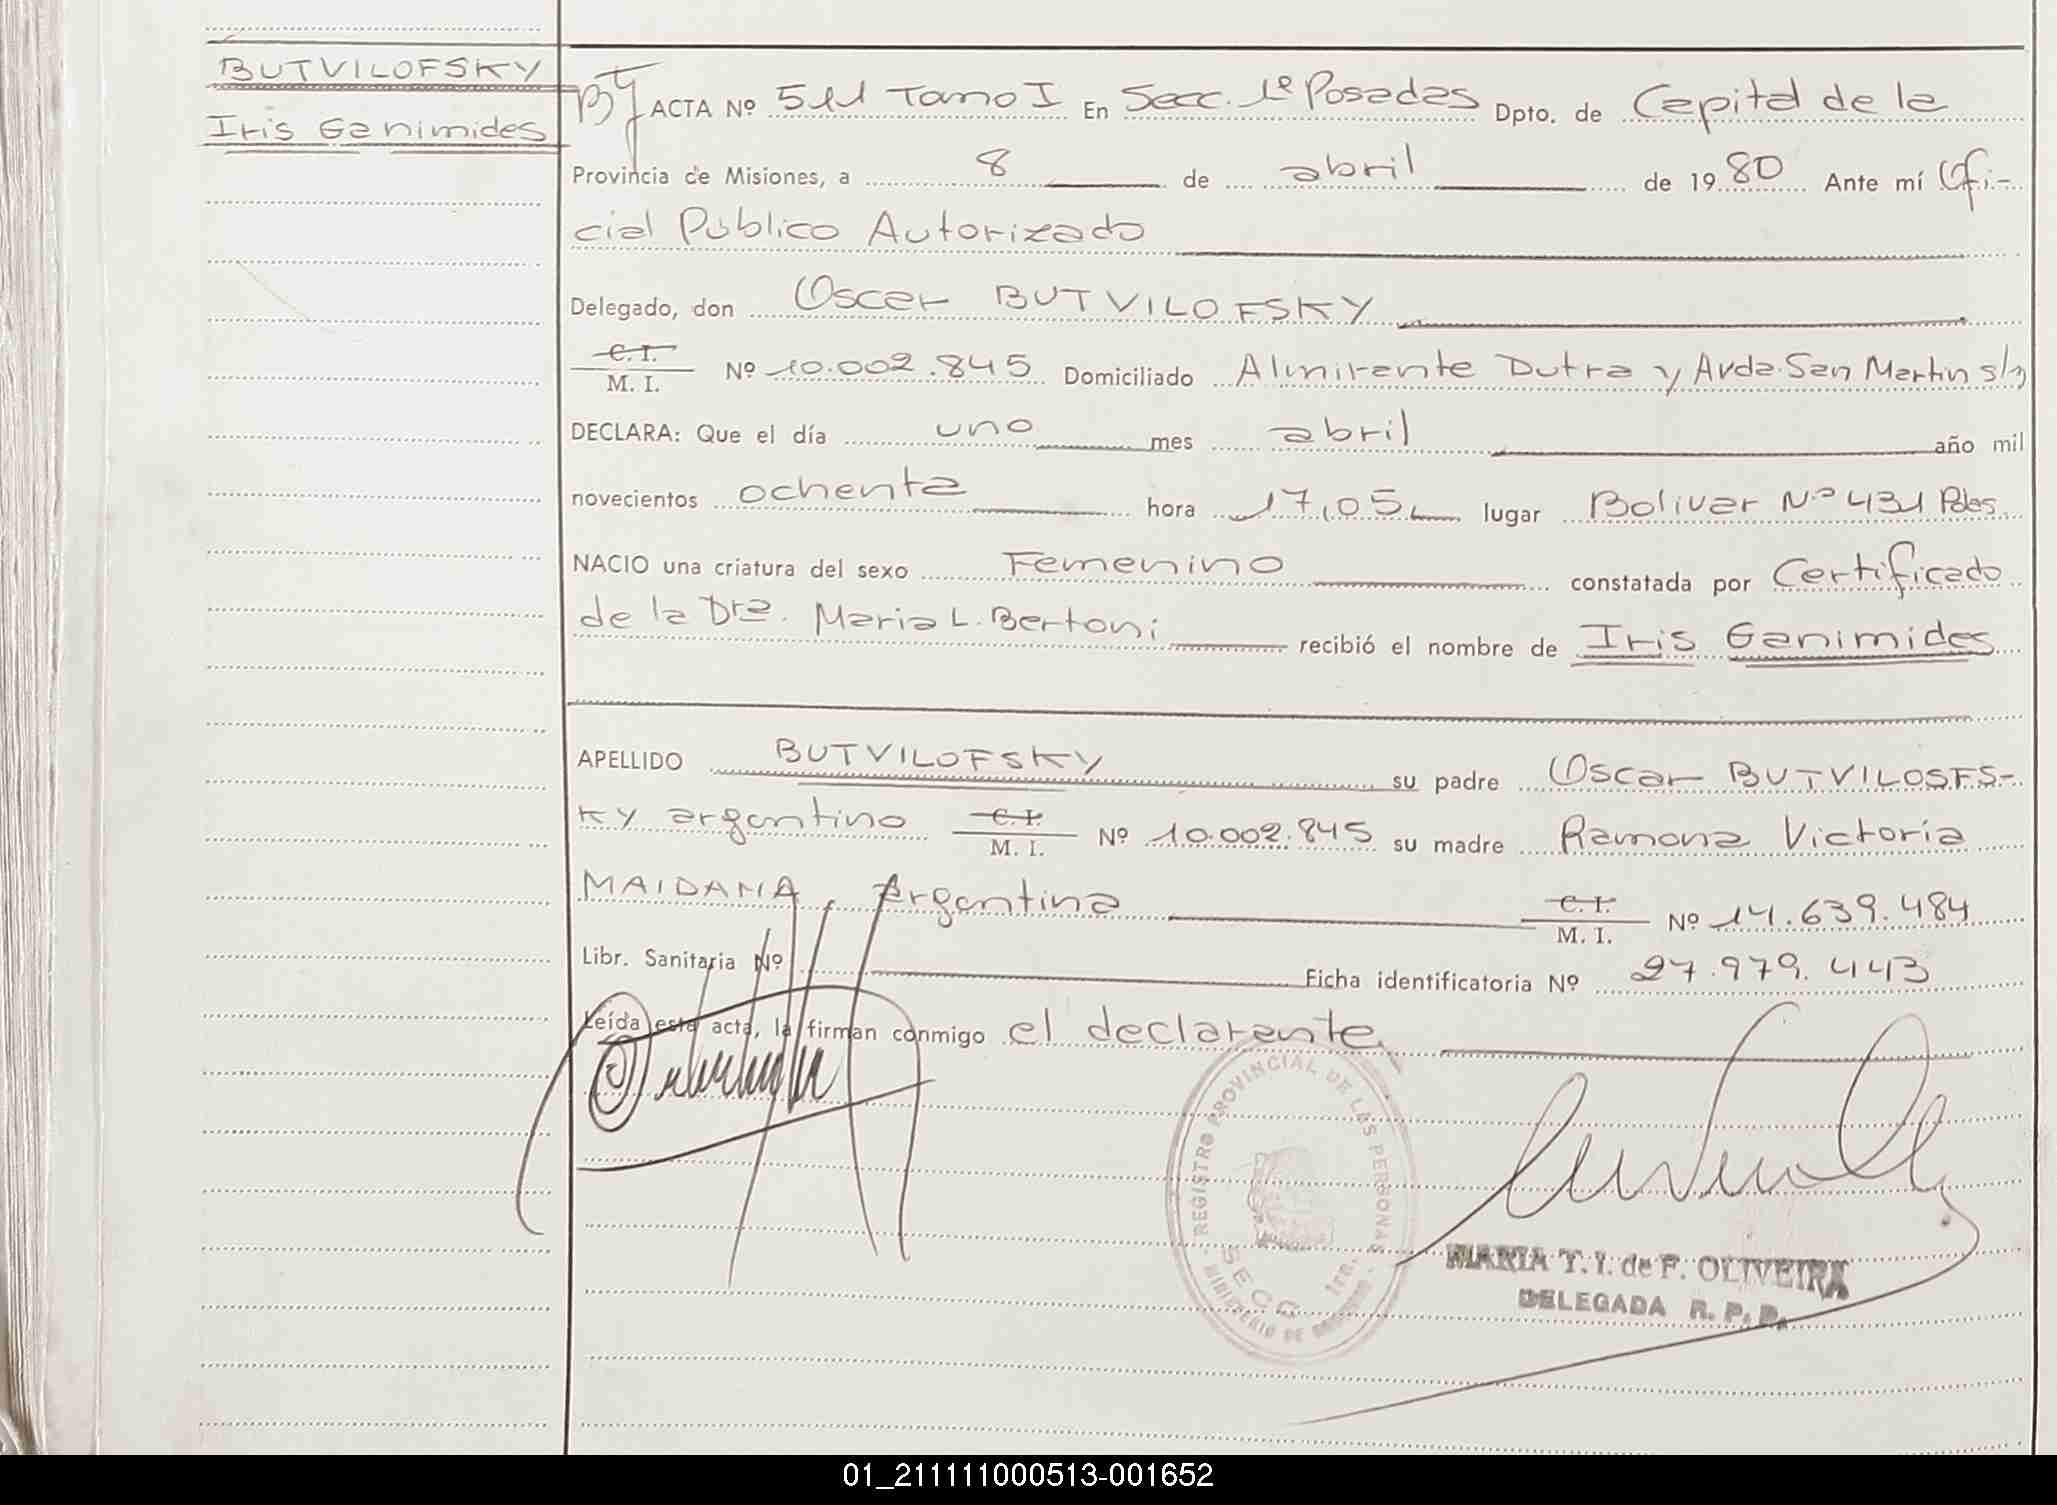 BUTVILOFSKY
Iris Ganimides
ACTA Nº 511 Tomo I En Secc. 1º Posadas Dpto. de Capital de la
Provincia de Misiones, a 8 de abril de 1980 Ante mí Ofi-
cial Público Autorizado
Delegado, don Oscar BUTVILOFSKY
C. I.
M. I. Nº 10.002.845 Domiciliado Almirante Dutra y Avda. San Martin s/n
DECLARA: Que el día uno mes abril año mil
novecientos ochenta hora 17,05 lugar Bolivar Nº 431 Pdas
NACIO una criatura del sexo Femenino constatada por Certificado
de la Dra. Maria L. Bertoni recibió el nombre de Iris Ganimides
APELLIDO BUTVILOFSKY su padre Oscar BUTVILOSFS-
KY argentino C. I. M. I. Nº 10.002.845 su madre Ramona Victoria
MAIDANA, Argentina C. I. M. I. Nº 14.639.484
Libr. Sanitaria Nº Ficha identificatoria Nº 27.979.443
Leída esta acta, la firman conmigo el declarante
REGISTRO PROVINCIAL DE LAS PERSONAS
SECC. 1ra.
MINISTERIO DE GOBIERNO
MARIA T. I. de F. OLIVEIRA
DELEGADA R. P. P.
01_211111000513-001652